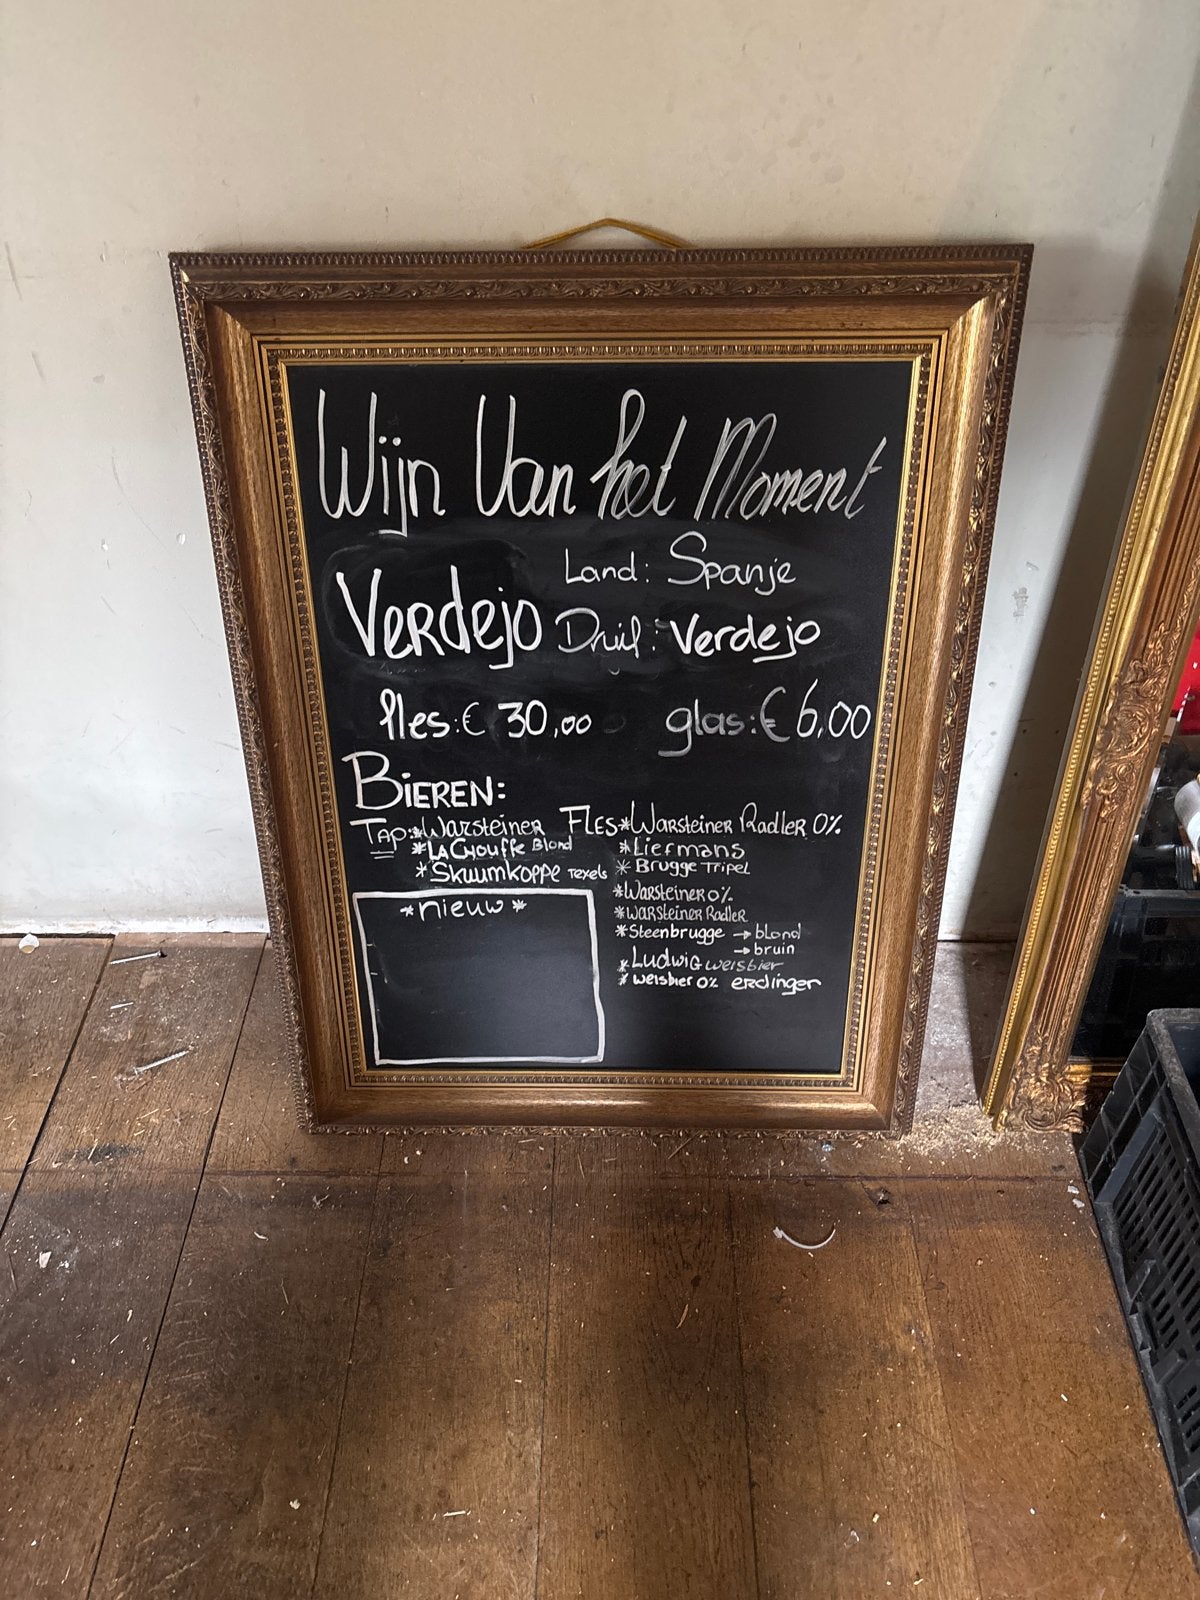 Wijn Van het Moment
Verdejo
Land: Spanje
Druif: Verdejo
fles: € 30,00
glas: € 6,00
BIEREN:
TAP: *Warsteiner
*LA CHOUFFE Blond
*Skuumkoppe Texels
*nieuw*
FLES *Warsteiner Radler 0%
*Liefmans
*Brugge Tripel
*Warsteiner 0%
*Warsteiner Radler
*Steenbrugge → blond
→ bruin
*Ludwig weisbier
*weisbier 0% erdinger